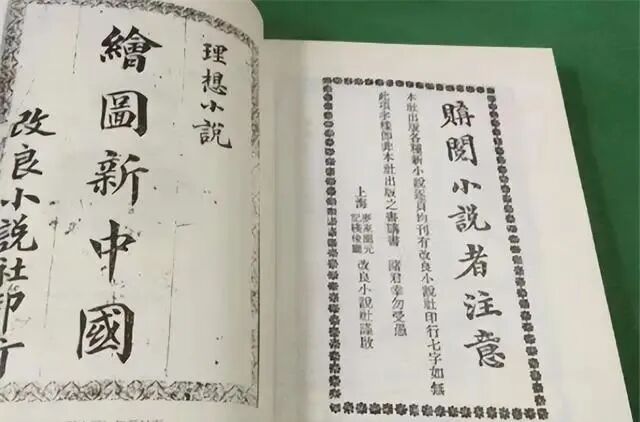 理想小說
繪圖新中國
改良小說社印
購閱小說者注意
本社出版各種新小說均刊有改良小說社印行七字如無
此項字樣即非本社出版之書購書 諸君幸勿受愚
上海 麥家圈元
記棧後廳 改良小說社謹啟